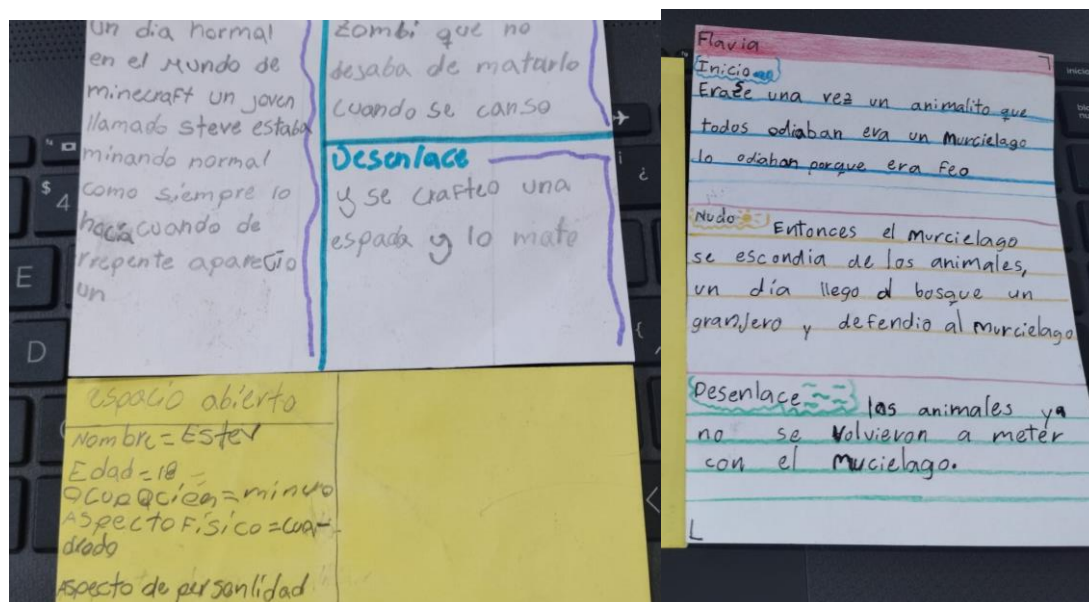 un dia normal
en el Mundo de
minecraft un joven
llamado steve estaba
minando normal
como siempre lo
hacia cuando de
rrepente aparecio
un
zombi que no
dejaba de matarlo
cuando se canso
Desenlace
y se crafteo una
espada y lo mato
espacio abierto
Nombre=Estev
Edad=18
ocupación=minero
Aspecto Físico=cua-
drado
Aspecto de personlidad
Flavia
Inicio
Erase una vez un animalito que
todos odiaban era un murcielago
lo odiaban porque era feo
Nudo Entonces el murcielago
se escondia de los animales,
un día llego al bosque un
granjero y defendio al murcielago
Desenlace los animales ya
no se volvieron a meter
con el mucielago.
$
4
E
D
{
¿
inicio